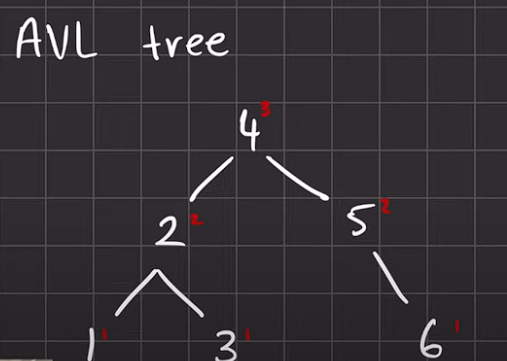 AVL tree
4 3
2 2 5 2
1 1 3 1 6 1